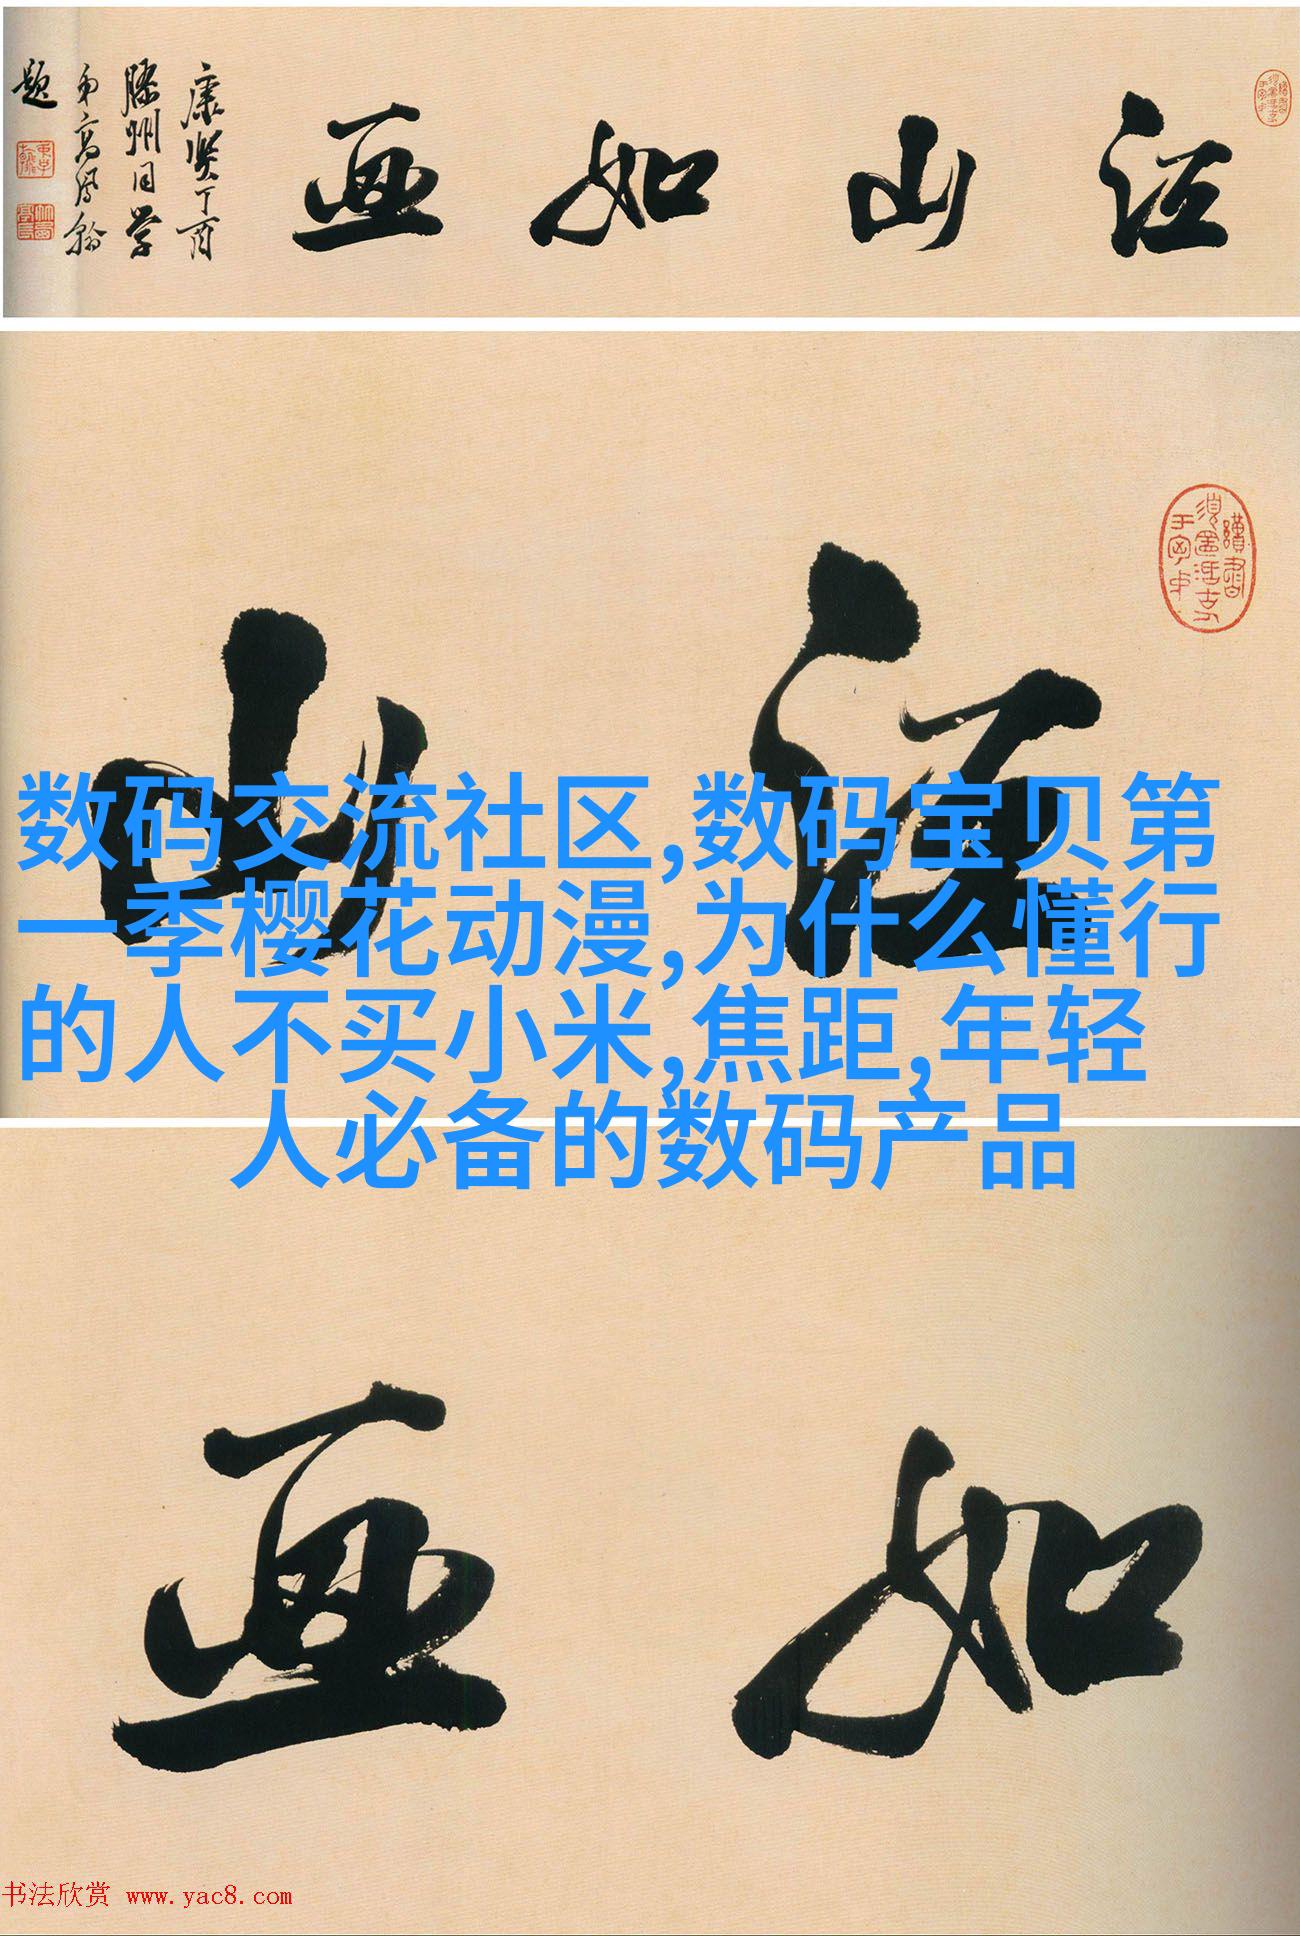 江山如画
康熙丁酉
滕州同学
弟高凤翰
题
江山
数码交流社区,数码宝贝第
一季樱花动漫,为什么懂行
的人不买小米,焦距,年轻
人必备的数码产品
如画
书法欣赏 www.yac8.com